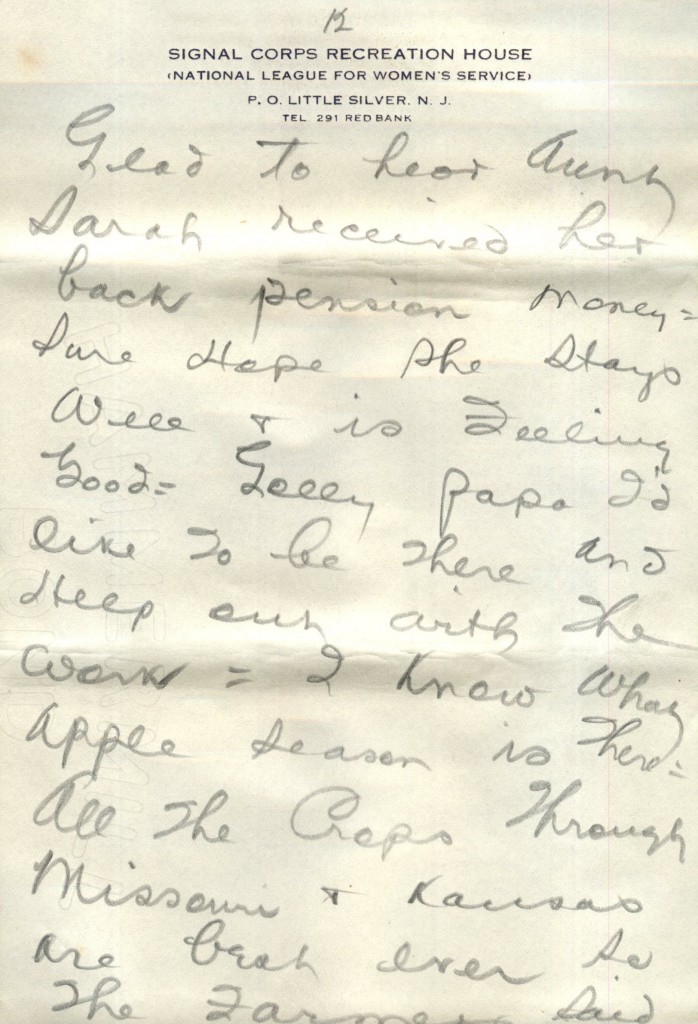 12
SIGNAL CORPS RECREATION HOUSE
(NATIONAL LEAGUE FOR WOMEN'S SERVICE)
P. O. LITTLE SILVER, N. J.
TEL. 291 RED BANK
Glad to hear Aunt
Sarah received her
back pension money =
Sure Hope she stays
Well + is Feeling
Good = Golly papa I'd
like to be there and
Help out with the
work = I know what
Apple season is there =
All the Crops Through
Missouri + Kansas
are best ever so
The Farmers said